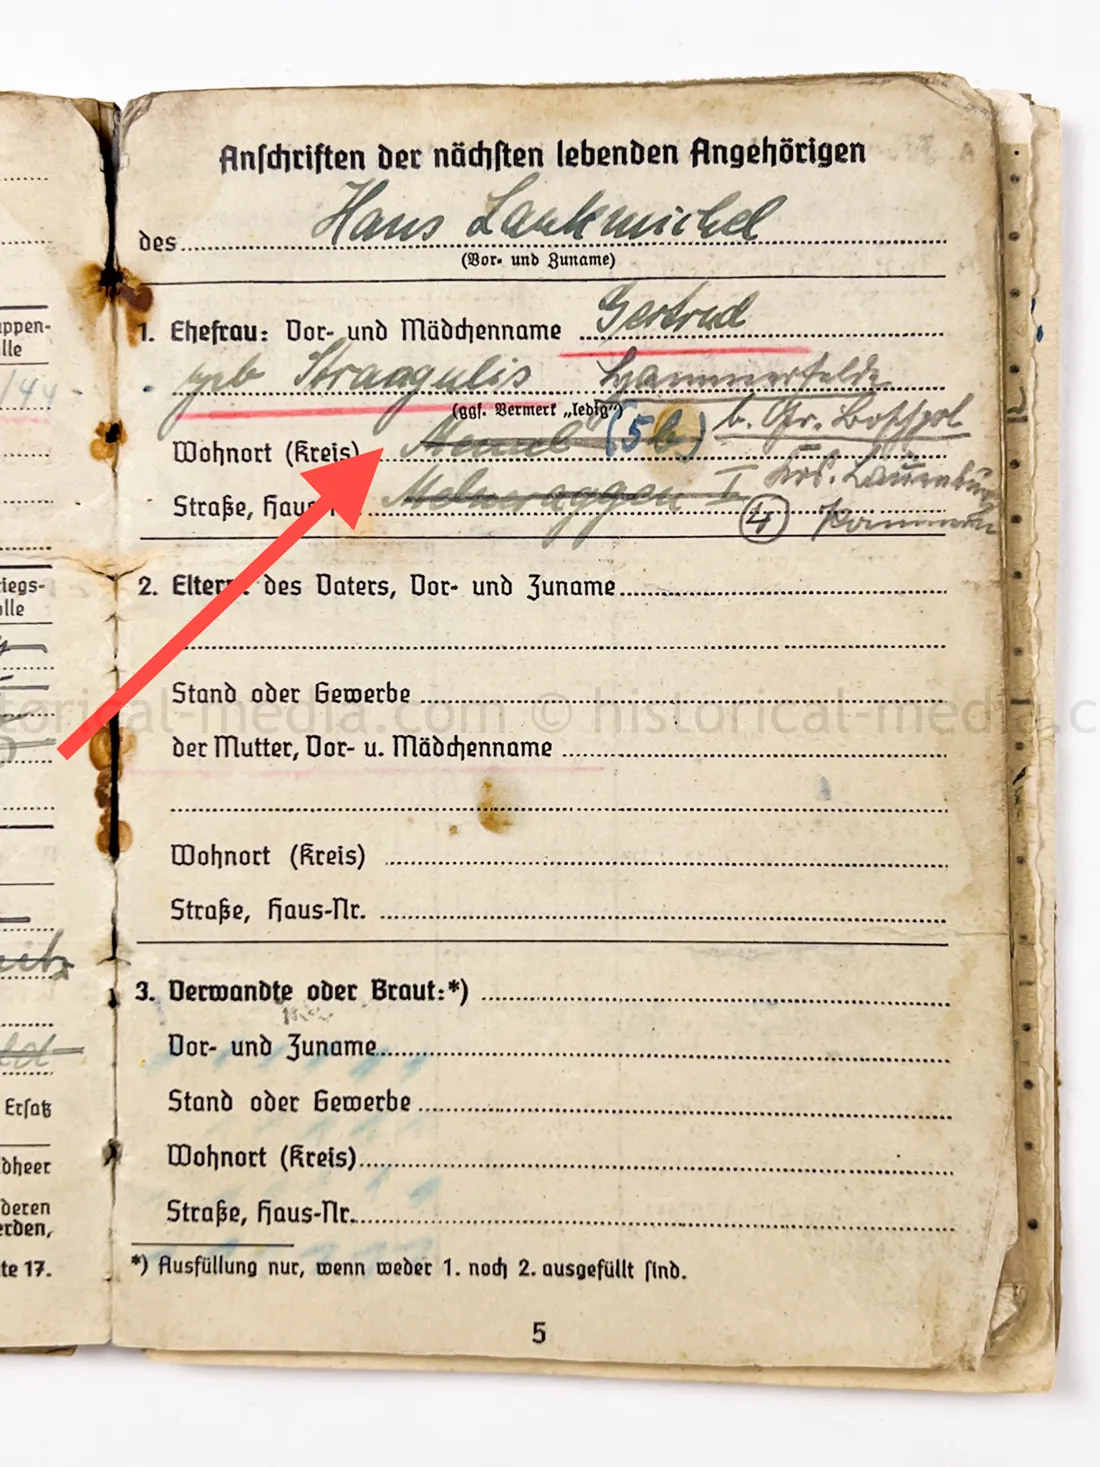 Anschriften der nächsten lebenden Angehörigen
des Hans Lankmichel
(Vor- und Zuname)
1. Ehefrau: Vor- und Mädchenname Gertrud
geb Straagulis Hammerfelde
(ggf. Vermerk „ledig“)
Wohnort (Kreis) Memel (5b) b. Gr. Boschpol
Straße, Hau I Krs. Lauenburg
4 Pommern
2. Eltern: des Vaters, Vor- und Zuname
Stand oder Gewerbe
historical-media.com © historical-media.c
der Mutter, Vor- u. Mädchenname
Wohnort (Kreis)
Straße, Haus-Nr.
3. Verwandte oder Braut:*)
Vor- und Zuname
Stand oder Gewerbe
Wohnort (Kreis)
Straße, Haus-Nr.
*) Ausfüllung nur, wenn weder 1. noch 2. ausgefüllt sind.
5
ppen-
lle
/44-
iegs-
olle
Ersatz
dheer
deren
erden,
te 17.